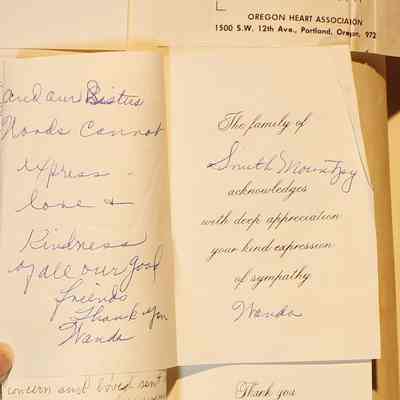 OREGON HEART ASSOCIATION
1500 S.W. 12th Ave., Portland, Oregon, 972
and our Sisters
Words cannot
express -
love &
Kindness
of all our good
friends
Thank you
Wanda
The family of
Smith
acknowledges
with deep appreciation
your kind expression
of sympathy
Wanda
concern and
sent
Thank you